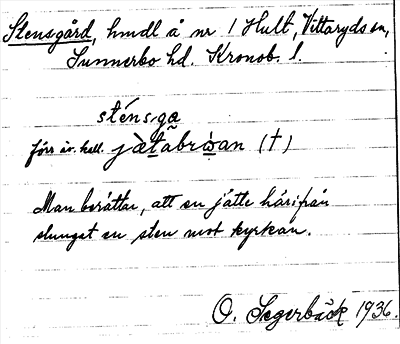 Stensgård, hmdl å nr 1 Hult, Vittaryds sn,
Sunnerbo hd. Kronob. l.
sténsga
förr äv. kall. jætabrẁan (†)
Man berättar, att en jätte härifrån
slungat en sten mot kyrkan.
O. Segerbäck 1936.